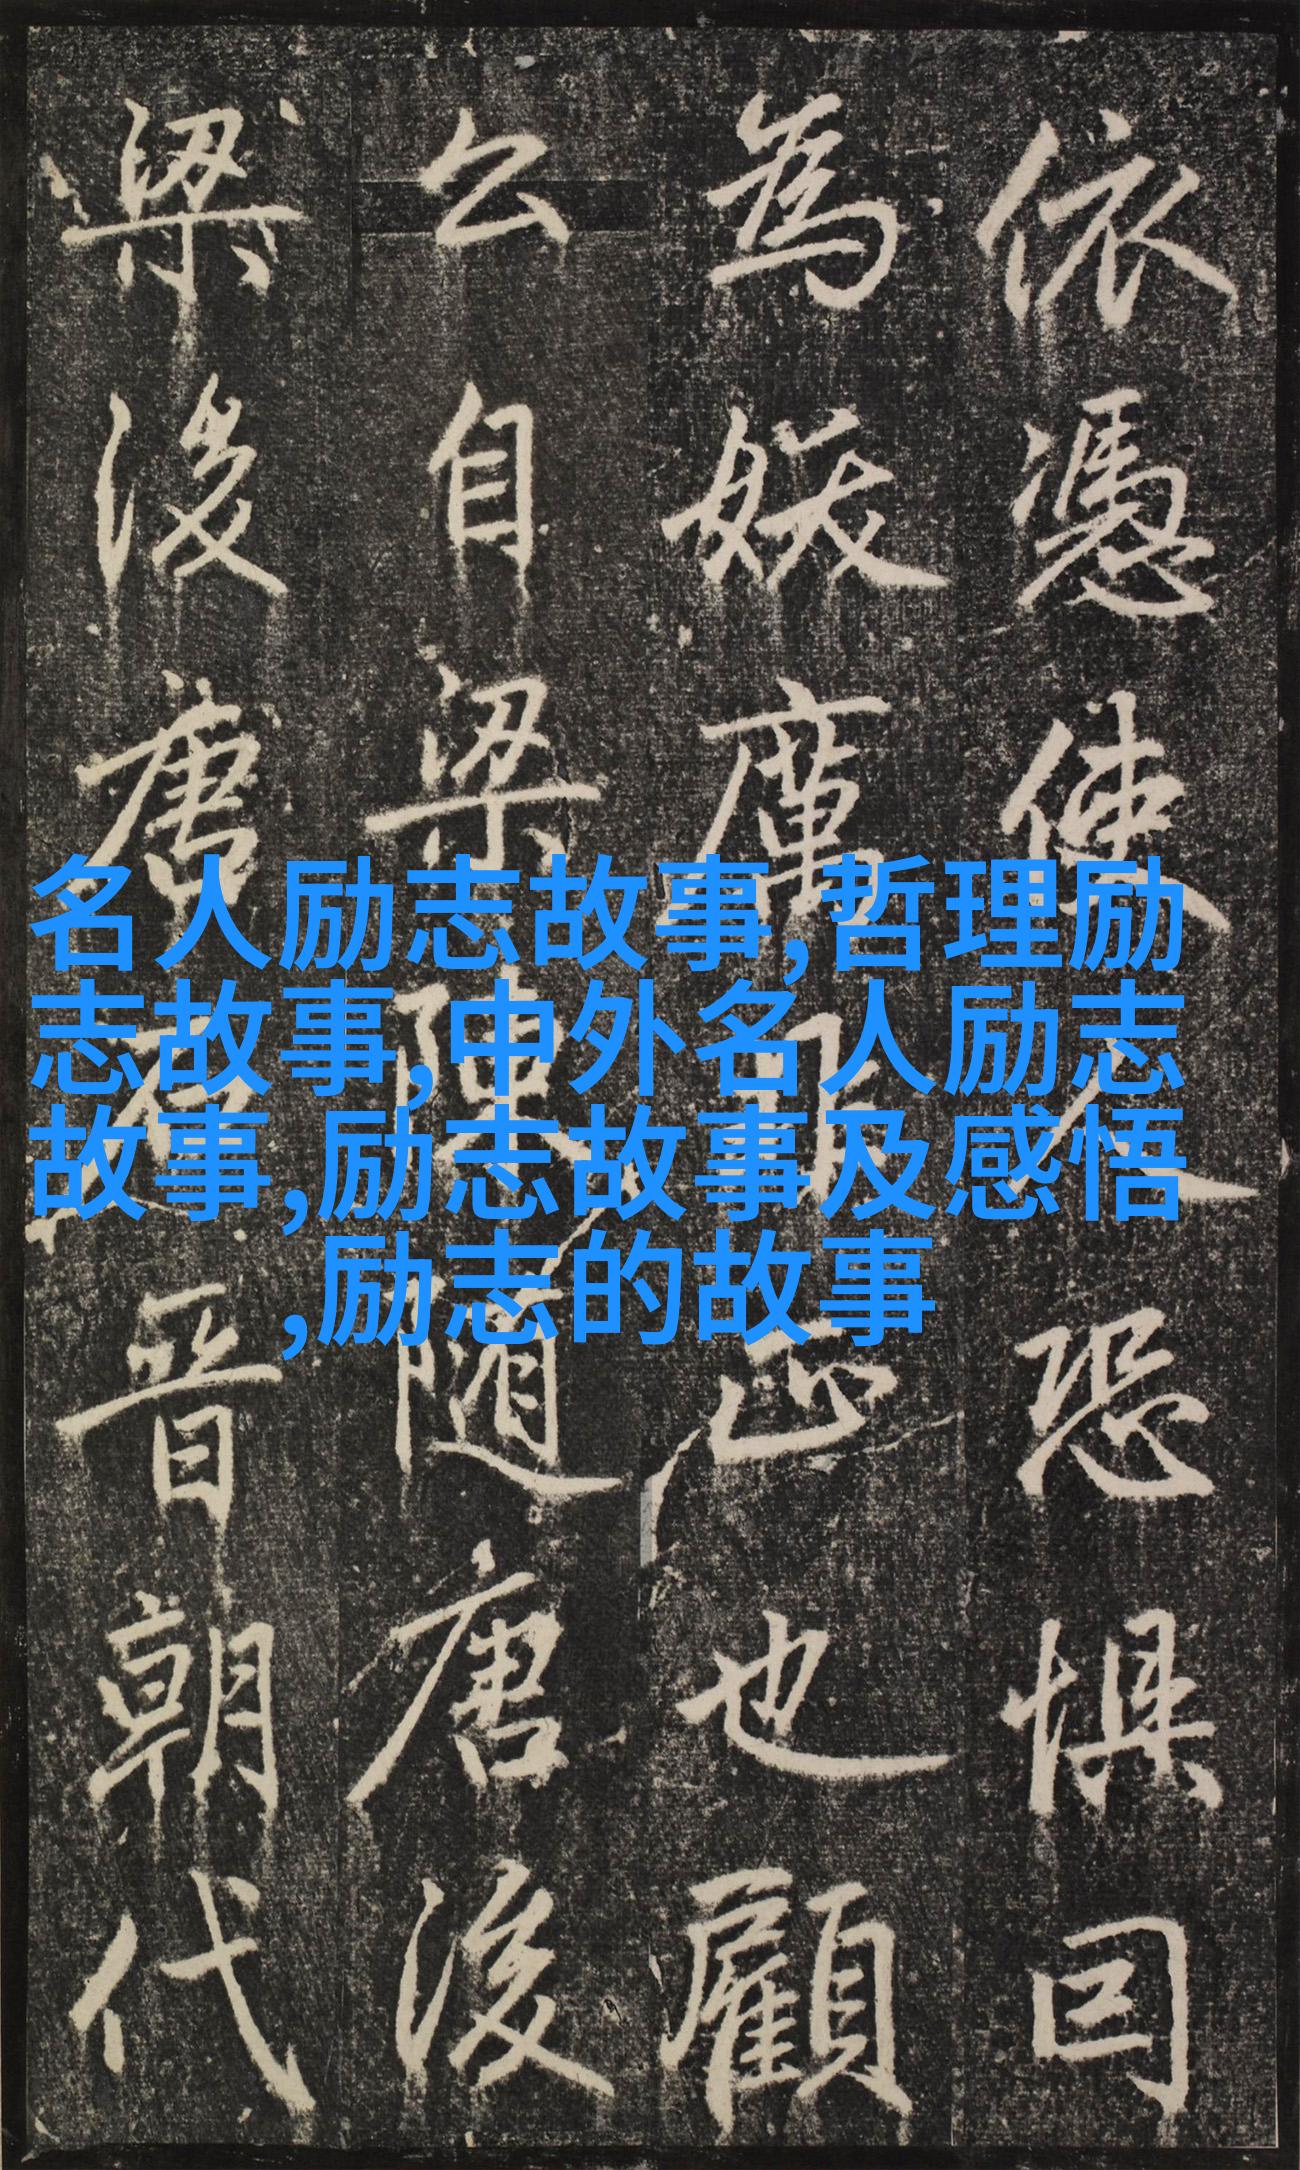 依憑使人恐懼囙
為妖厲非正也顧
公自梁陳随唐後
梁後唐石晉朝代
名人励志故事,哲理励
志故事,中外名人励志
故事,励志故事及感悟
,励志的故事